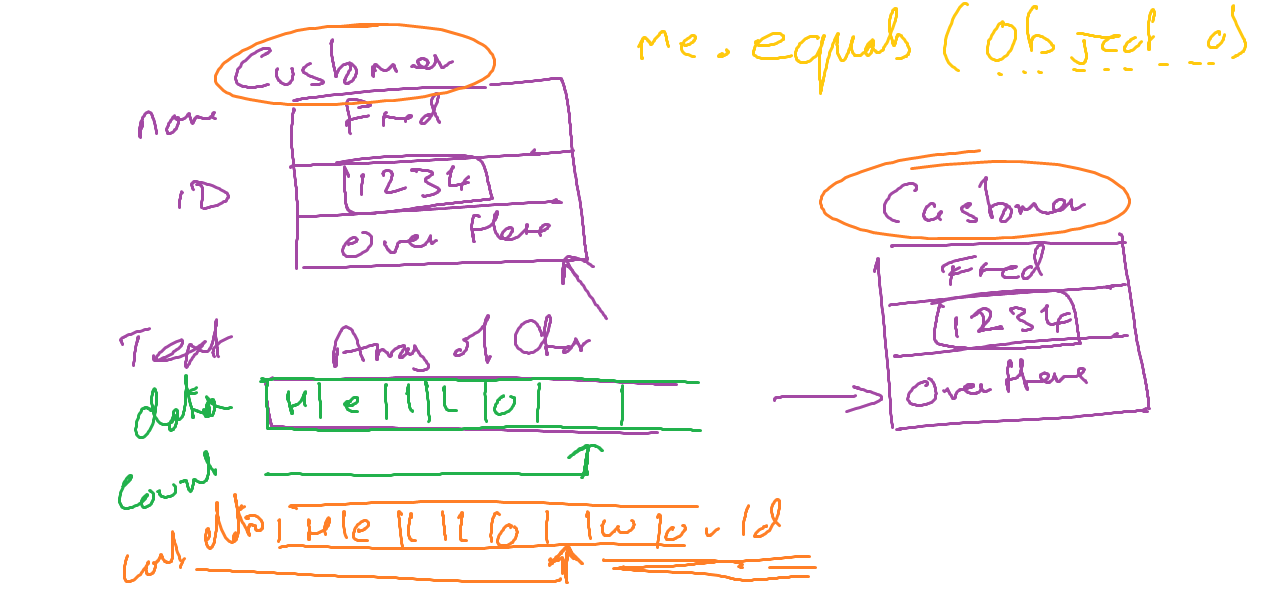 me.equals (Object o)
Customer
name Fred
ID 1234
Over Here
Customer
Fred
1234
Over Here
Text Array of Char
data H e l l o
count
data H e l l o w o r l d
count